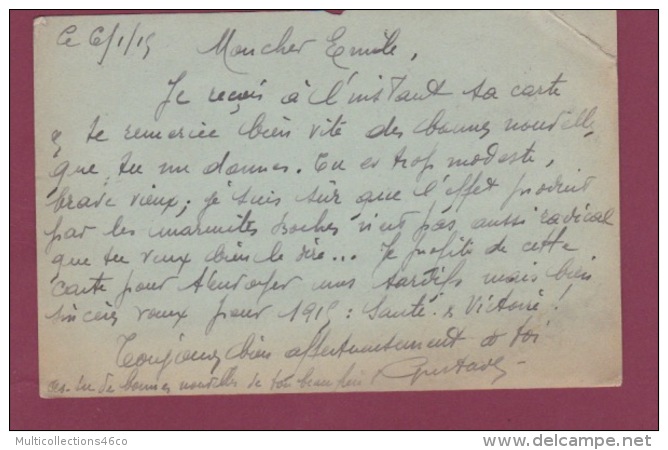 Ce 6/1/15 Mon cher Emile,
Je reçois à l'instant ta carte
& te remercie bien vite des bonnes nouvelles
que tu me donnes. Tu es trop modeste,
brave vieux; je suis sûr que l'effet produit
par les marmites boches n'est pas aussi radical
que tu veux bien le dire... Je profite de cette
carte pour t'envoyer mes tardifs mais bien
sincères voeux pour 1915: Santé & Victoire!
Toujours bien affectueusement à toi
Gustave
as-tu de bonnes nouvelles de ton beau père ?
Multicollections46co
www.delcampe.net